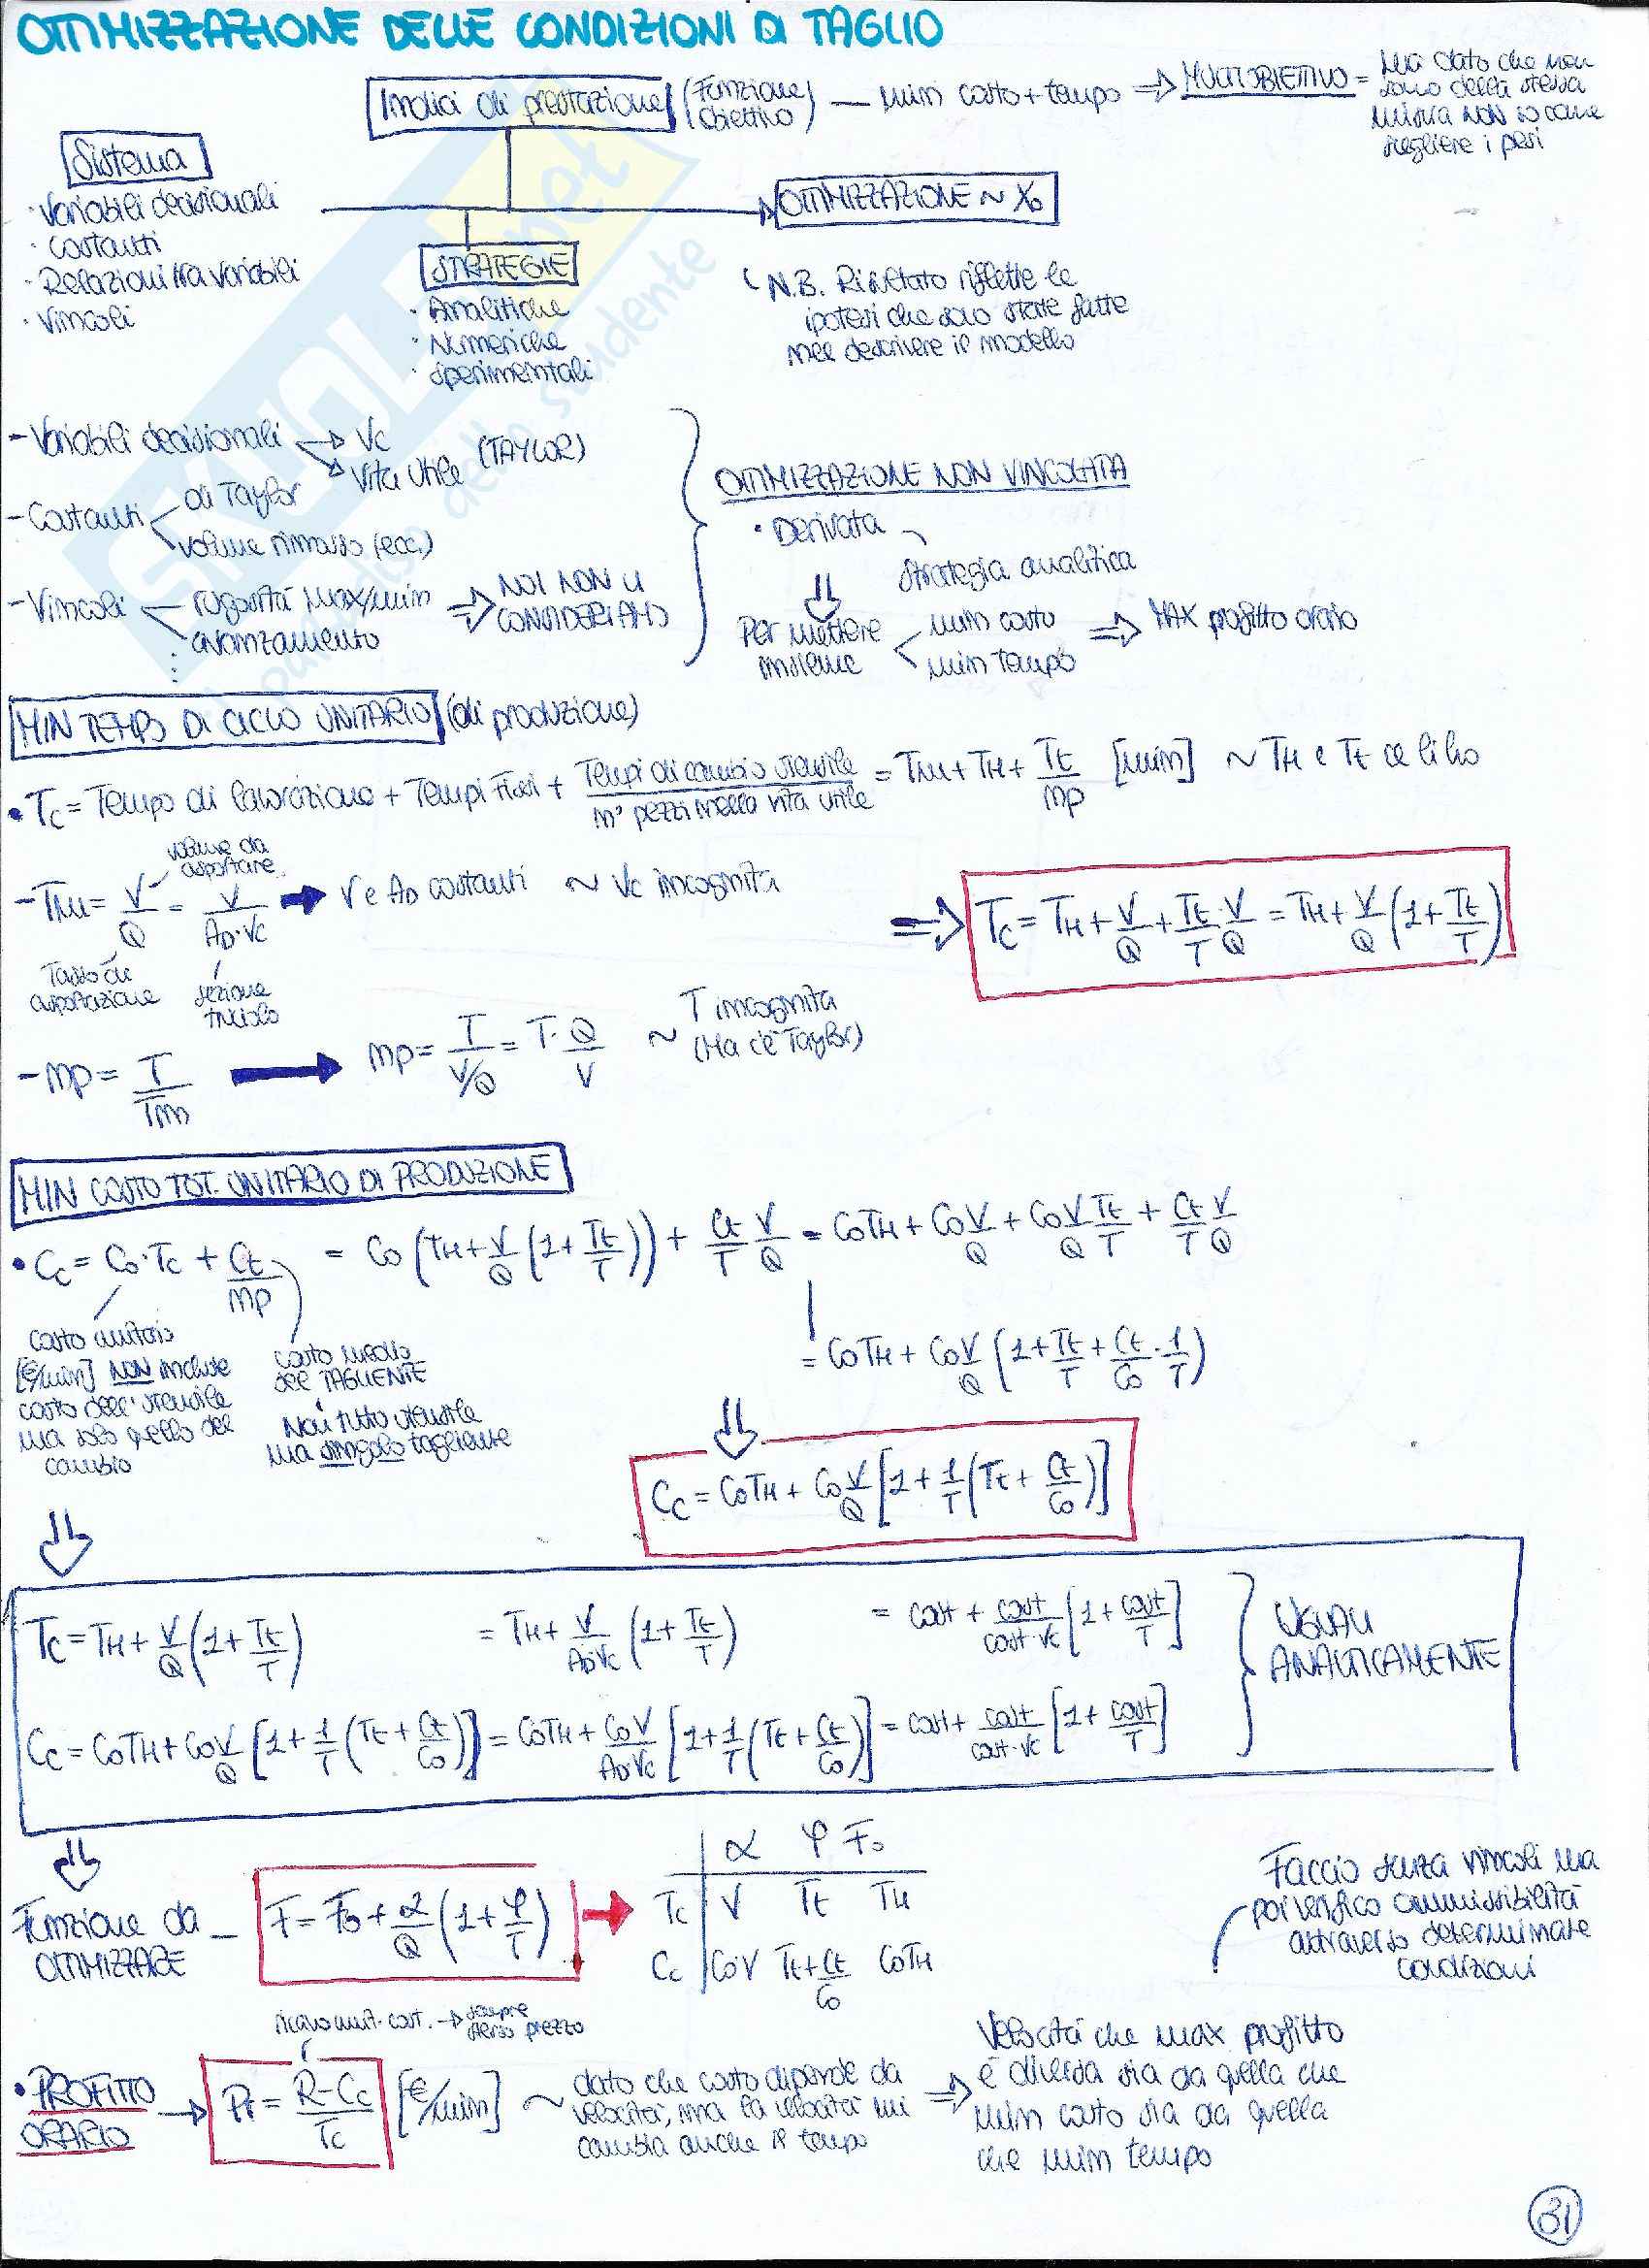 OTTIMIZZAZIONE DELLE CONDIZIONI DI TAGLIO
Indici di prestazione (Funzione obiettivo) — min costo + tempo ⇒ MULTIOBIETTIVO = Ma dato che non
sono della stessa
misura NON so come
scegliere i pesi
Sistema
· Variabili decisionali
· Costanti
· Relazioni tra variabili
· Vincoli
OTTIMIZZAZIONE ~ X₀
STRATEGIE
· Analitiche
· Numeriche
· Sperimentali
N.B. Risultato riflette le
ipotesi che sono state fatte
nel descrivere il modello
- Variabili decisionali → Vc
→ Vita Utile (TAYLOR)
- Costanti < di Taylor
volume rimosso (ecc.)
- Vincoli < rugosità max/min
avanzamento
⋮
⇒ NOI NON LI
CONSIDERIAMO
OTTIMIZZAZIONE NON VINCOLATA
· Derivata
Strategia analitica
⇓
Per mettere
insieme
< min costo
min tempo
⇒ MAX profitto orario
MIN TEMPO DI CICLO UNITARIO (di produzione)
• Tc = Tempo di lavorazione + Tempi Fissi + Tempi di cambio utensile / n° pezzi nella vita utile = Tm + TH + Tt/mp [min] ~ TH e Tt ce li ho
volume da
asportare
- Tm = V/Q = V/(AD·Vc) → V e AD costanti ~ Vc incognita
Tasso di
asportazione
sezione
truciolo
⇒ Tc = TH + V/Q + Tt/T · V/Q = TH + V/Q (1 + Tt/T)
- mp = T/Tm → mp = T/(V/Q) = T · Q/V ~ T incognita
(Ma c'è Taylor)
MIN COSTO TOT. UNITARIO DI PRODUZIONE
• Cc = Co·Tc + Ct/mp = Co (TH + V/Q (1 + Tt/T)) + Ct/T V/Q = CoTH + Co V/Q + Co V/Q Tt/T + Ct/T V/Q
= CoTH + Co V/Q (1 + Tt/T + Ct/Co · 1/T)
Costo unitario
[€/min] NON include
costo dell'utensile
ma solo quello del
cambio
costo medio
del TAGLIENTE
Non tutto utensile
ma singolo tagliente
⇓
Cc = CoTH + Co V/Q [1 + 1/T (Tt + Ct/Co)]
⇓
Tc = TH + V/Q (1 + Tt/T) = TH + V/(AD·Vc) (1 + Tt/T) = cost + cost/(cost·Vc) [1 + cost/T]
Cc = CoTH + Co V/Q [1 + 1/T (Tt + Ct/Co)] = CoTH + CoV/(AD·Vc) [1 + 1/T (Tt + Ct/Co)] = cost + cost/(cost·Vc) [1 + cost/T]
UGUALI
ANALITICAMENTE
⇓
Funzione da
OTTIMIZZARE
— F = F₀ + α/Q (1 + φ/T) →
α φ F₀
Tc V Tt TH
Cc CoV Tt + Ct/Co CoTH
Faccio senza vincoli ma
poi verifico ammissibilità
attraverso determinate
condizioni
ricavo unit. cost. → sempre
stesso prezzo
• PROFITTO
ORARIO
→ Pr = (R - Cc)/Tc [€/min] ~ dato che costo dipende da
velocità, ma la velocità mi
cambia anche il tempo
⇒ Velocità che max profitto
è diversa sia da quella che
min costo sia da quella
che min tempo
31